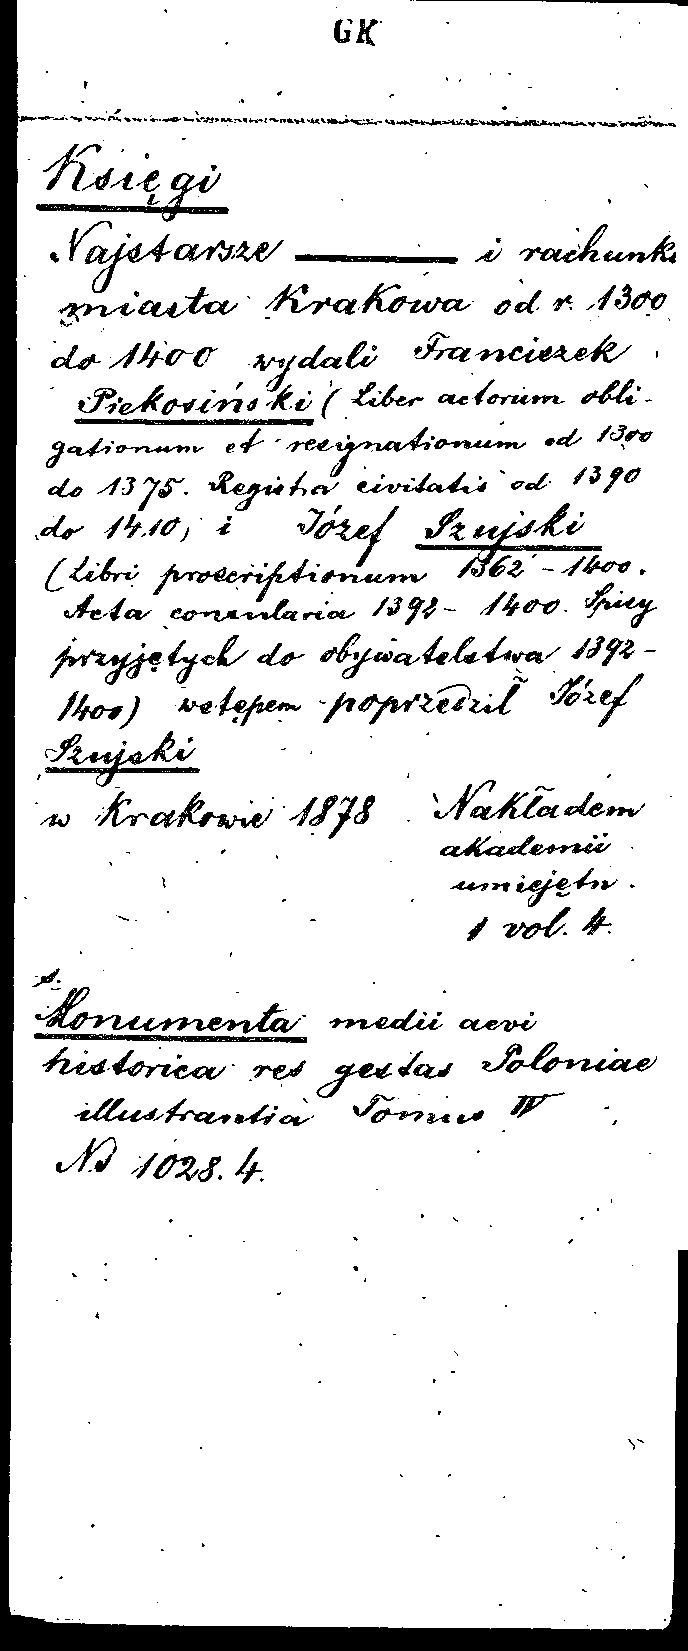 GK
Księgi
Najstarsze ——— i rachunki
miasta Krakowa od r. 1300
do 1400 wydali Franciszek
Piekosiński (Liber actorum obli-
gationum et resignationum od 1300
do 1375. Registra civitatis od 1390
do 1410, i Józef Szujski
(Libri proscriptionum 1362 - 1400.
Acta consularia 1392 - 1400. Spisy
przyjętych do obywatelstwa 1392 -
1400) wstępem poprzedził Józef
Szujski
w Krakowie 1878 Nakładem
akademii
umiejętn.
1 vol. 4.
s.
Monumenta medii aevi
historica res gestas Poloniae
illustrantia Tomus IV
1028. 4.